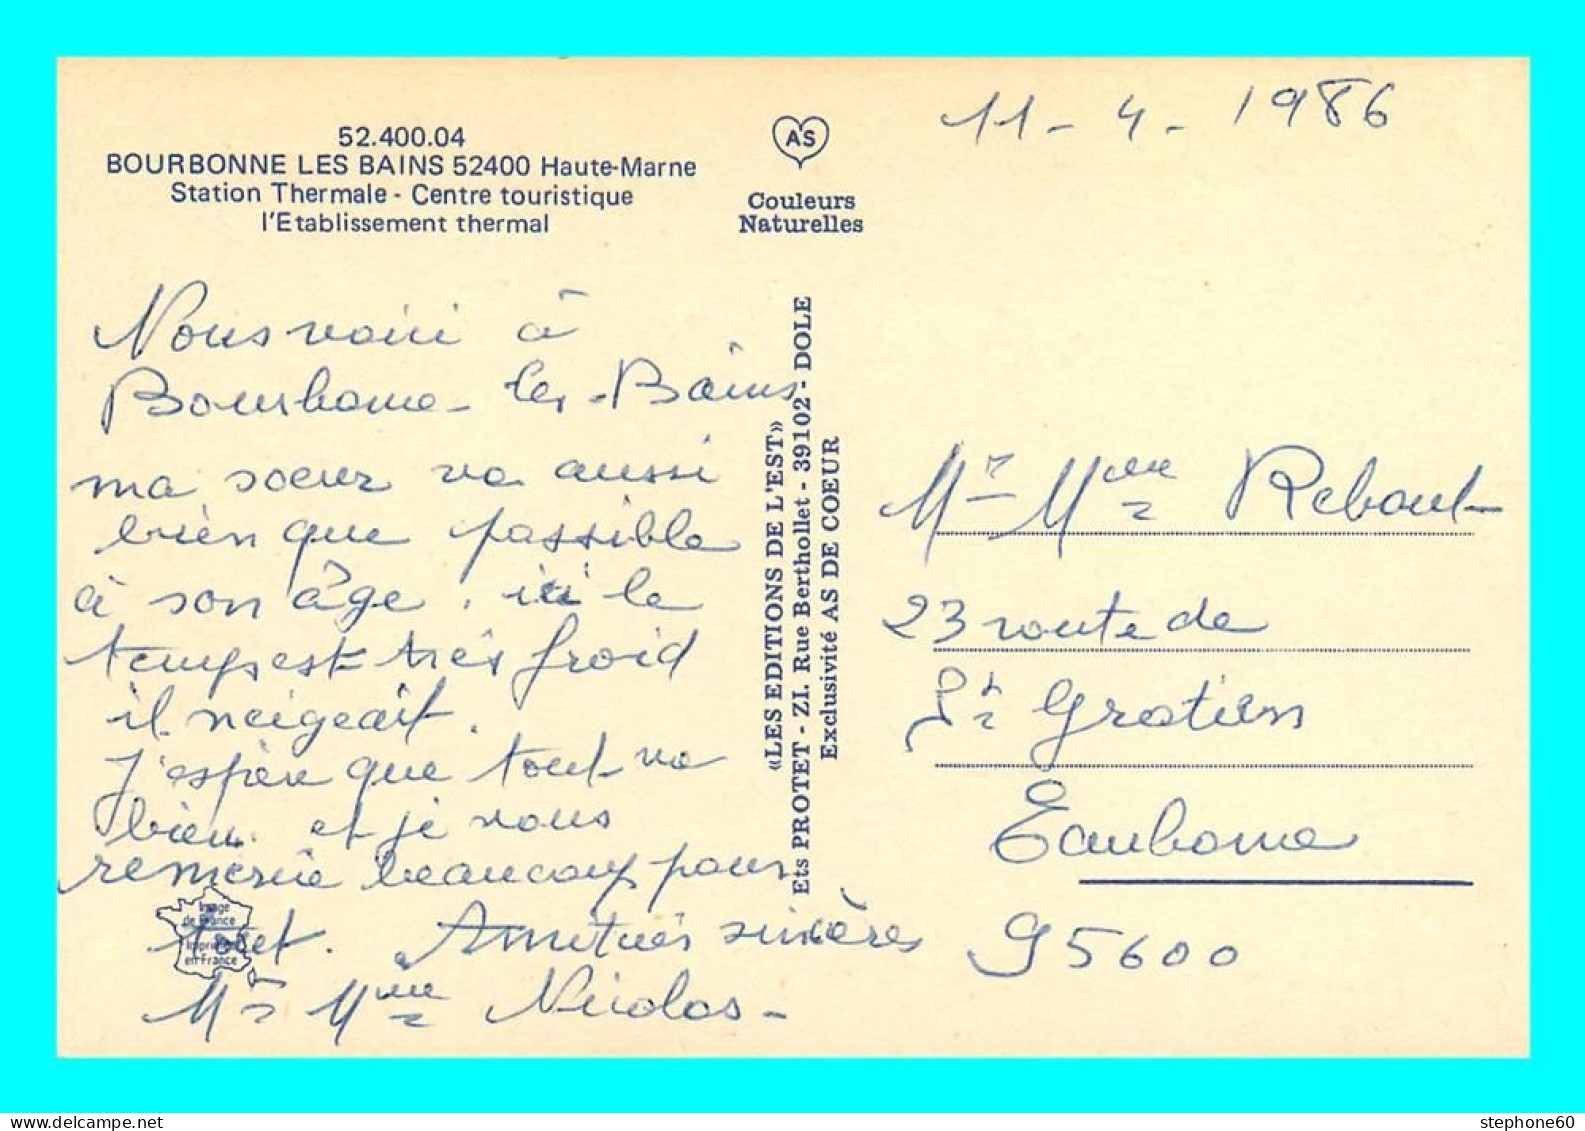 11 - 4 - 1986
52.400.04
BOURBONNE LES BAINS 52400 Haute-Marne
Station Thermale - Centre touristique
l'Etablissement thermal
AS
Couleurs
Naturelles
Nous voici à
Bourbonne-les-Bains
ma soeur va aussi
bien que possible
à son âge. ici le
temps est très froid
il neigeait.
J'espère que tout va
bien. et je vous
remercie beaucoup pour
tout. Amitiés sincères
Mr Mme Nicolas-
Image
de France
Imprimé
en France
«LES EDITIONS DE L'EST»
Ets PROTET - ZI. Rue Berthollet - 39102 - DOLE
Exclusivité AS DE COEUR
Mr Mme Reboul
23 route de
St Gratien
Eaubonne
95600
stephone60